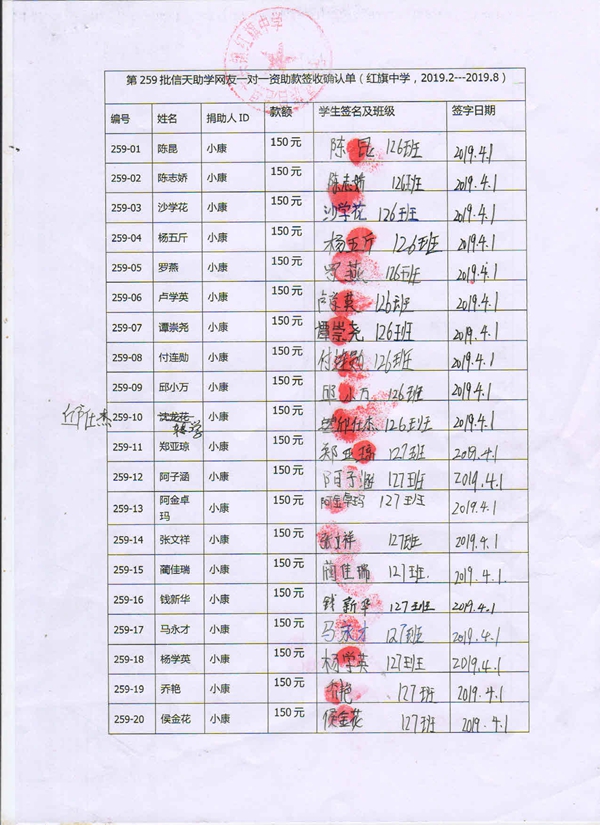 第 259 批信天助学网友一对一资助款签收确认单（红旗中学，2019.2---2019.8）
编号 姓名 捐助人 ID 款额 学生签名及班级 签字日期
259-01 陈昆 小康 150 元 陈昆 126班 2019.4.1
259-02 陈志娇 小康 150 元 陈志娇 126班 2019.4.1
259-03 沙学花 小康 150 元 沙学花 126班 2019.4.1
259-04 杨五斤 小康 150 元 杨五斤 126班 2019.4.1
259-05 罗燕 小康 150 元 罗燕 126班 2019.4.1
259-06 卢学英 小康 150 元 卢学英 126班 2019.4.1
259-07 谭崇尧 小康 150 元 谭崇尧 126班 2019.4.1
259-08 付连勋 小康 150 元 付连勋 126班 2019.4.1
259-09 邱小万 小康 150 元 邱小万 126班 2019.4.1
259-10 沈龙花 小康 150 元 126班 2019.4.1
转学
259-11 郑亚琼 小康 150 元 郑亚琼 127班 2019.4.1
259-12 阿子涵 小康 150 元 阿子涵 127班 2019.4.1
259-13 阿金卓玛 小康 150 元 阿金卓玛 127班 2019.4.1
259-14 张文祥 小康 150 元 张文祥 127班 2019.4.1
259-15 蔺佳瑞 小康 150 元 蔺佳瑞 127班. 2019.4.1
259-16 钱新华 小康 150 元 钱新华 127班 2019.4.1
259-17 马永才 小康 150 元 马永才 127班 2019.4.1
259-18 杨学英 小康 150 元 杨学英 127班 2019.4.1
259-19 乔艳 小康 150 元 乔艳 127班 2019.4.1
259-20 侯金花 小康 150 元 侯金花 127班 2019.4.1
红旗中学